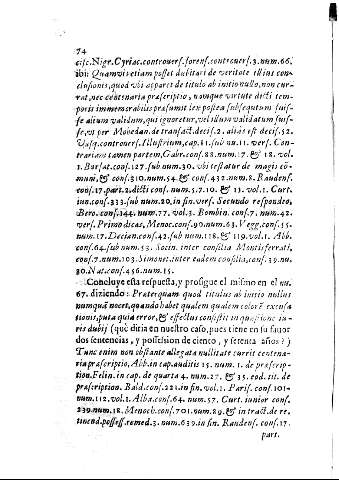 74
cisc. Nigr. Cyriac. controuers. forens. controuers. 3. num. 66.
ibi: Quamvis etiam posset dubitari de veritate illius con-
clusionis, quod vbi apparet de titulo ab initio nullo, non cur-
rat, nec centenaria præscriptio, namque virtute dicti tem-
poris immemorabilis præsumit lex postea subsequtum fuis-
se alium validum, qui ignoretur, vel illum validatum fuis-
se, vt per Mohedan. de transact. decis. 2. aliàs est decis. 52.
Vasq. controuers. illustrium, cap. 81. sub nu. 11. vers. Con-
trariam tamen partem, Gabr. cons. 88. num. 17. & 18. vol.
1. Bursat. cons. 127. sub num. 30. vbi testatur de magis cō-
muni, & cons. 310. num. 54. & cons. 432. num. 8. Raudens.
cons. 17. part. 2. dicti cons. num. 5. 7. 10. & 11. vol. 1. Curt.
iun. cons. 333. sub num. 20. in fin. vers. Secundo respondeo,
Bero. cons. 144. num. 77. vol. 3. Bombin. cons. 7. num. 42.
vers. Primo dicas, Menoc. cons. 90. num. 63. Vegg. cons. 15.
num. 17. Decian. cons. 42. sub num. 118. & 119. vol. 1. Alb.
cons. 64. sub num. 53. Socin. inter consilia Montisferrati,
cons. 7. num. 103. Simonet. inter eadem consilia, cons. 39. nu.
80. Nat. cons. 456. num. 15.
Concluye esta respuesta, y prosigue el mismo en el nu.
67. diziendo: Præterquam quod titulus ab initio nullus
numquā nocet, quando habet qualem qualem coloē excusa
tionis, puta quia error, & effectus consistit in quæstione iu-
ris dubij (què diria en nuestro caso, pues tiene en su fauor
dos sentencias, y possession de ciento, y setenta años?)
Tunc enim non obstante allegata nullitate currit centena-
ria præscriptio, Abb. in cap. auditis 15. num. 1. de præscrip-
tion. Felin. in cap. de quarta 4. num. 27. & 35. eod. tit. de
præscription. Bald. cons. 221. in fin. vol. 1. Paris. cons. 101.
num. 112. vol. 1. Alba cons. 64. num. 57. Curt. iunior cons.
239. num. 18. Menoch. cons. 701. num. 89. & in tract. de re-
tinend. possess. remed. 3. num. 639. in fin. Raudens. cons. 17.
part.